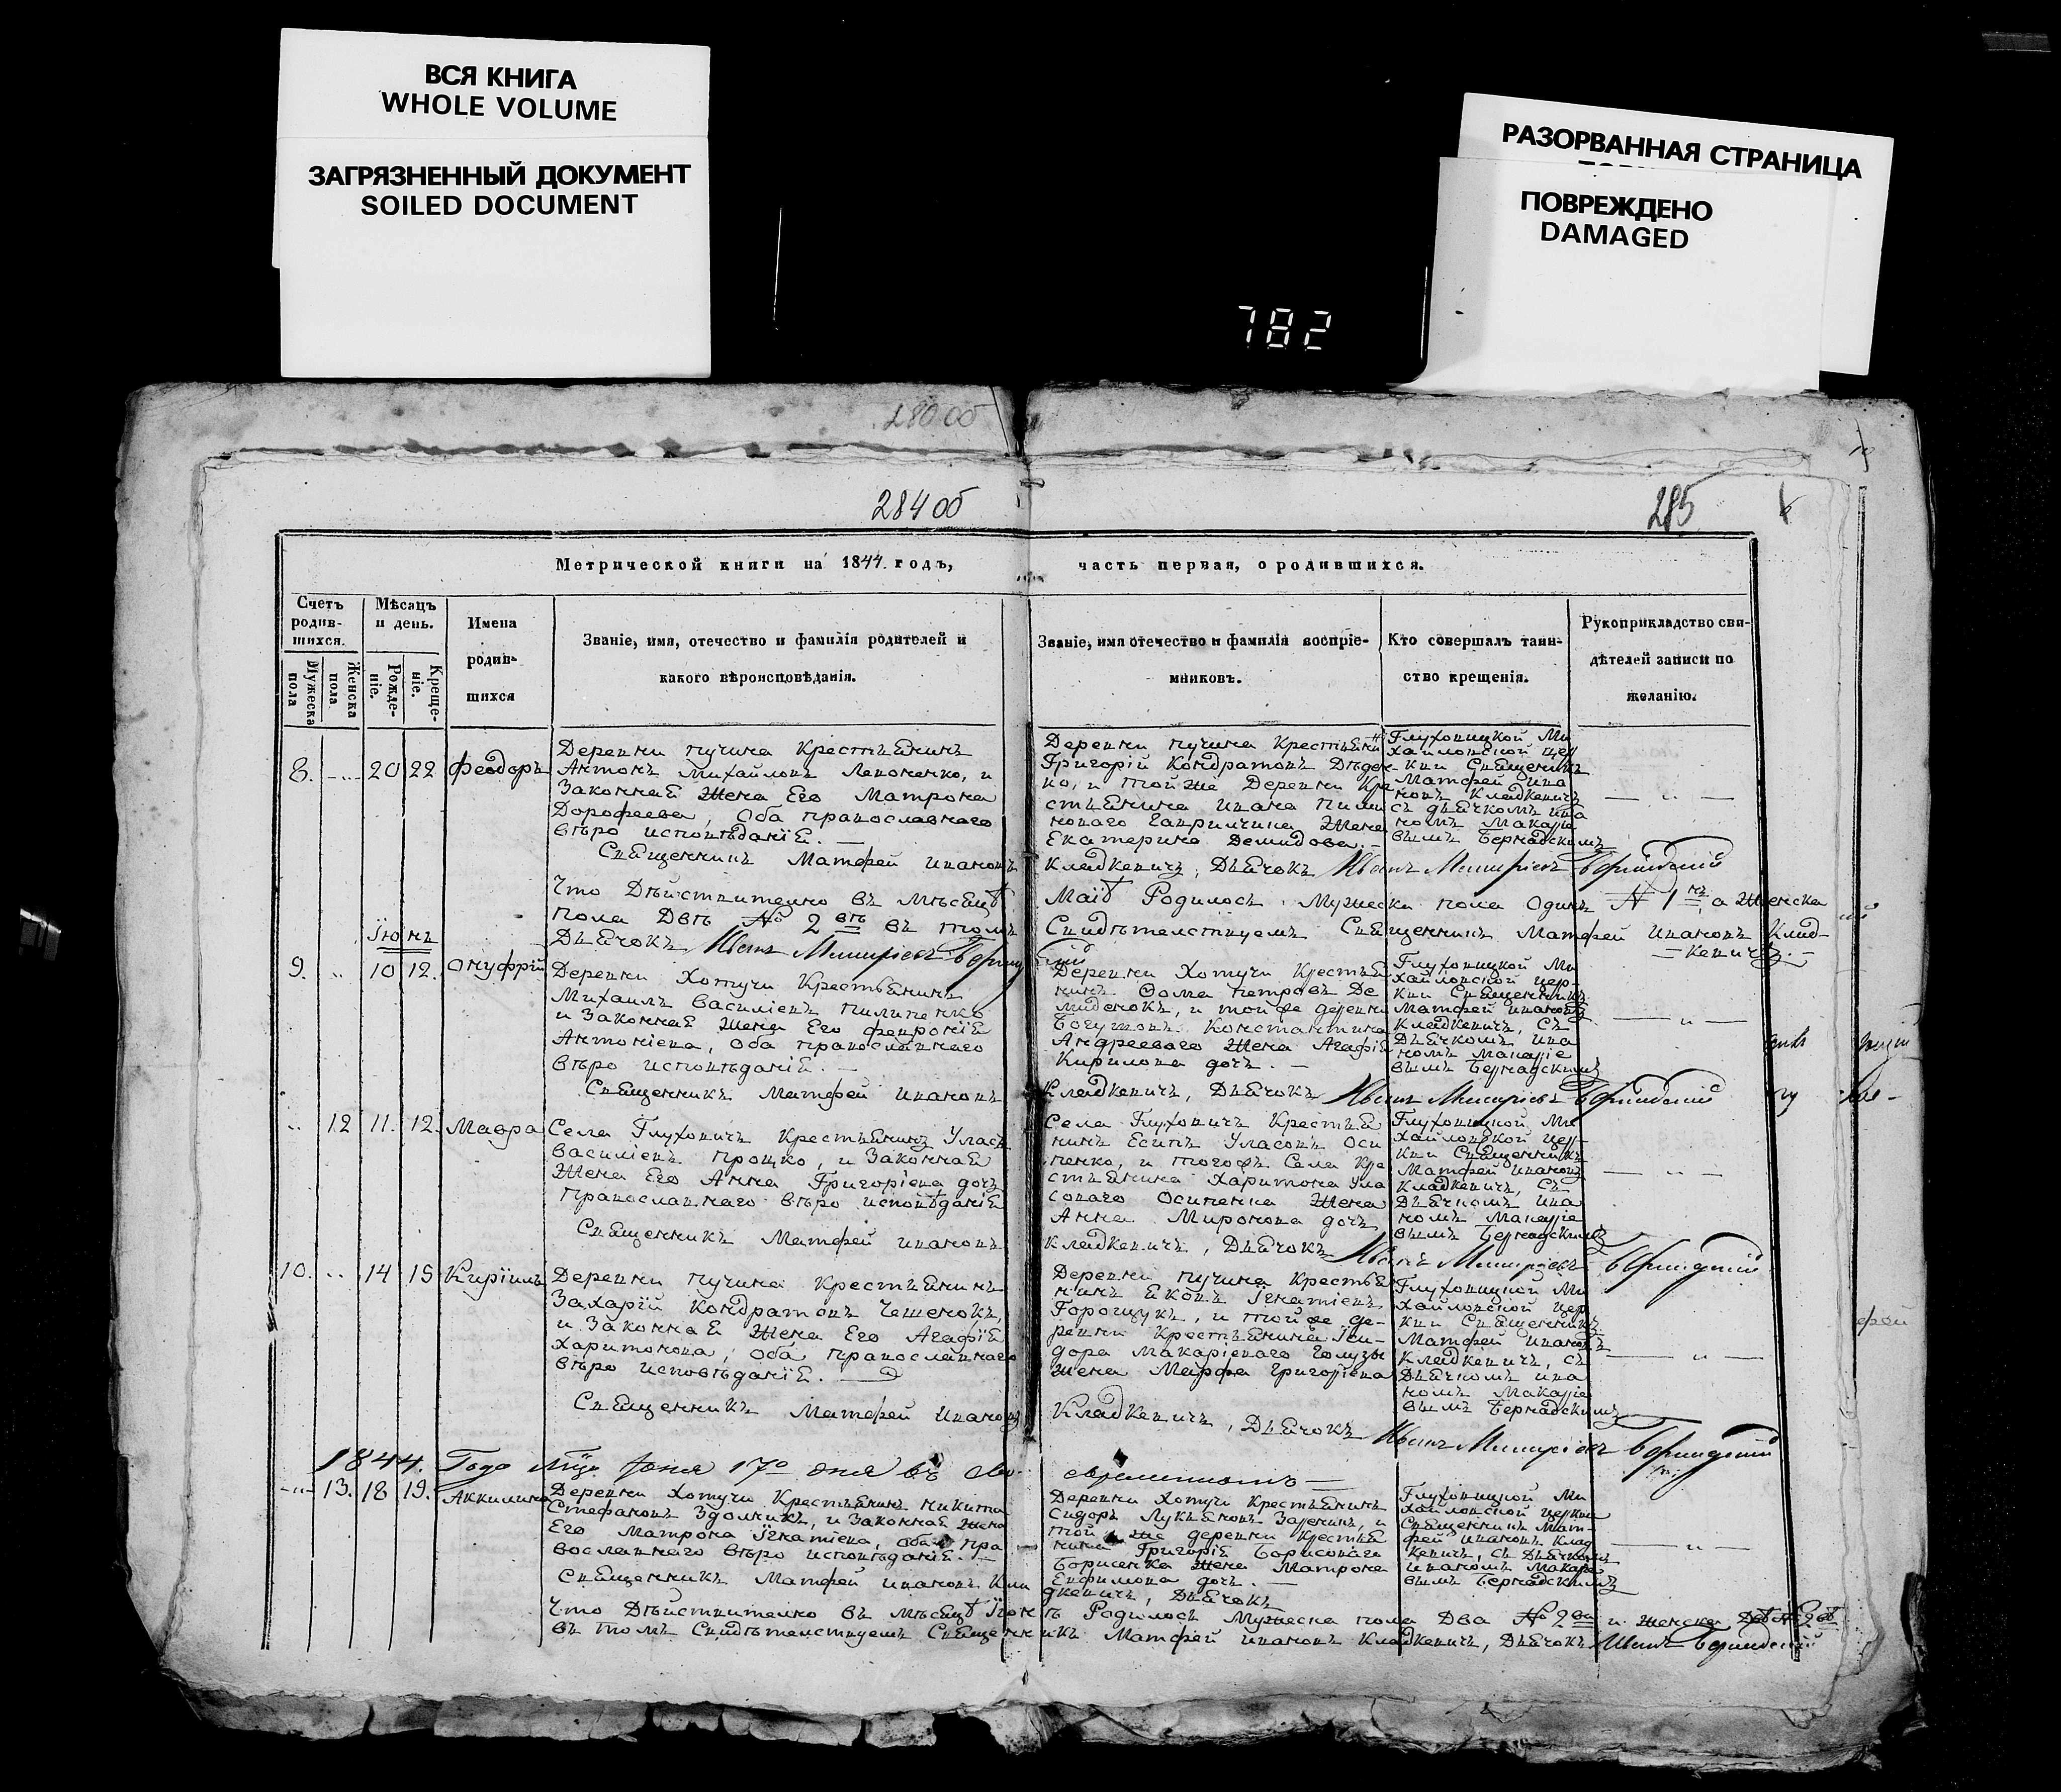 ВСЯ КНИГА
WHOLE VOLUME
ЗАГРЯЗНЕННЫЙ ДОКУМЕНТ
SOILED DOCUMENT
РАЗОРВАННАЯ СТРАНИЦА
ПОВРЕЖДЕНО
DAMAGED
782
280 об
284 об
285
Метрической книги на 1844. годъ,
часть первая, о родившихся.
Счетъ родив-шихся.
Мужеска пола
Женска пола
Мѣсяцъ и день.
Рожде-ніе.
Креще-ніе.
Имена
родив-
шихся
Званіе, имя, отечество и фамилія родителей и
какого вѣроисповѣданія.
Званіе, имя отечество и фамилія воспріе-
мниковъ.
Кто совершалъ таин-
ство крещенія.
Рукоприкладство сви-
дѣтелей записи по
желанію.
8. 20 22 Феодоръ
Деревни Пучина Крестьянинъ
Антонъ Михайловъ Левоненко, и
Законная Жена Его Матрона
Дорофеева, Оба православнаго
вѣро исповѣданія. —
Священникъ Матфей Ивановъ
Деревни Пучина Крестьяни
Григорій Кондратовъ Дѣден
ко, и той же Деревни Кре
стьянина Ивана Пили
пова
Екатерина Демидова. —
Кладкевичъ, Дьячокъ Иванъ
Глуховицкой Ми
хайловской цер
кви Священникъ
Матфей Ива
новъ Кладкевичъ
съ дьячкомъ Ива
номъ Макаріе
вымъ Бернадскимъ
Что Дѣйствително въ Мѣсяцѣ
Маіѣ Родилось Мужеска пола Одинъ № 1, а Женска
пола Двѣ № 2 въ томъ
Свидѣтелствуемъ Священникъ Матфей Ивановъ Клад-
кевичъ. —
Дьячокъ Иванъ
Іюнь
9. 10 12. Онуфрій
Деревни Хотучи Крестьянинъ
Михаилъ Василіевъ Пилипенко
и Законная Жена Его Февронія
Антоніева, Оба православнаго
вѣро исповѣданія. —
Священникъ Матфей Ивановъ
Деревни Хотучи Крестья
нинъ Фома Петровъ Де
миденокъ, и той же деревни
Константина
Андрееваго Жена Агафія
Кирилова дочь. —
Кладкевичъ, Дьячокъ Иванъ
Глуховицкой Ми
хайловской цер-
кви Священникъ
Матфей Ивановъ
Кладкевичъ, съ
Дьячкомъ Ива
номъ Макаріе
вымъ Бернадскимъ
12 11. 12. Мавра
Села Глуховичъ Крестьянинъ Уласъ
Василіевъ Процко, и Законная
Жена Его Анна Григоріева дочь
Православнаго вѣро исповѣданія
Священникъ Матфей Ивановъ
Села Глуховичъ Крестья
нинъ Есипъ Уласовъ Оси
пенко, и тогожъ Села Кре
стьянина Харитона Ула
соваго Осипенка Жена
Анна Миронова дочь
Кладкевичъ, Дьячокъ Иванъ
Глуховицкой Ми
хайловской цер-
кви Священникъ
Матфей Ивановъ
Кладкевичъ, съ
Дьячкомъ Ива
номъ Макаріе
вымъ Бернадскимъ
10. 14 15 Кирилъ
Деревни Пучина Крестьянинъ
Захарій Кондратовъ Чешенокъ,
и Законная Жена Его Агафія
Харитонова, Оба православнаго
вѣро исповѣданія.
Священникъ Матфей Ивановъ
Деревни Пучина Крестья
нинъ Яковъ Ігнатіевъ
Горощукъ, и тойже де-
ревни Крестьянина Іси-
дора Макаріеваго Голузы
Жена Марфа Григоріева
Кладкевичъ, Дьячокъ Иванъ
Глуховицкой Ми
хайловской цер
кви Священникъ
Матфей Ивановъ
Кладкевичъ, съ
Дьячкомъ Ива
номъ Макаріе
вымъ Бернадскимъ
1844. Года Іюня 17 дня
13. 18 19. Аккилина
Деревни Хотучи Крестьянинъ Никита
Стефановъ Здолникъ, и Законная Жена
Его Матрона Ігнатіева, оба пра
вославнаго вѣро исповѣданія. —
Священникъ Матфей Ивановъ Кла
Деревни Хотучи Крестьянинъ
Сидоръ Лукьяновъ Заренокъ, и
той же деревни Крестья
нина Григорія Борисоваго
Борисенка Жена Матрона
Евфимова дочь. —
дкевичъ, Дьячокъ
Глуховицкой Ми
хайловской церкви
Священникъ Мат-
фей Ивановъ Клад
кевичъ, съ Дьячкомъ
Иваномъ Макаріе
вымъ Бернадскимъ
Что Дѣйствително въ Мѣсяцѣ Іюнѣ Родилось Мужеска пола Два № 2 и Женска Двѣ № 2
въ томъ Свидѣтелствуемъ Священникъ Матфей Ивановъ Кладкевичъ, Дьячокъ Иванъ